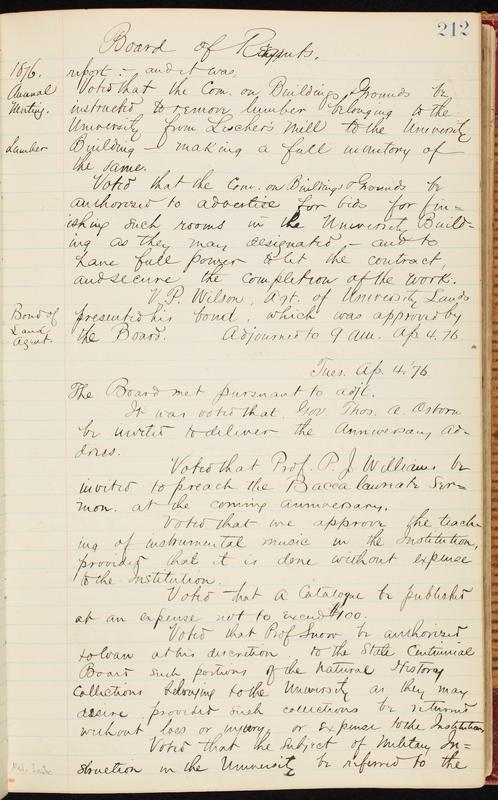 212
Board of Regents.
1876. report:- and it was,
Annual Voted that the Com. on Buildings & Grounds be
Meeting. instructed to remove lumber belonging to the
University from Lescher's Mill to the University
Lumber Building - making a full inventory of
the same.
Voted that the Com. on Buildings & Grounds be
authorized to advertise for bids for fin=
ishing such rooms in the University Build=
ing as they may designated, - and to
have full power to let the contract,
and secure the completion of the work.
V. P. Wilson, Agt. of University Lands
Bond of presented his bond, which was approved by
Land the Board. Adjourned to 9 am. Ap 4. 76.
Agent.
Tues. Ap. 4. '76.
The Board met pursuant to adjt.
It was voted that Gov. Thos. A. Osborn
be invited to deliver the Anniversary Ad-
dress.
Voted that Prof. P. J. Williams be
invited to preach the Baccalaureate Ser=
mon at the coming anniversary.
Voted that we approve the teach-
ing of instrumental music in the Institution,
provided that it is done without expense
to the Institution.
Voted that a Catalogue be published
at an expense not to exceed $100.
Voted that Prof Snow be authorized
to loan at his discretion to the State Centennial
Board such portions of the Natural History
Collections belonging to the University as they may
desire, provided such collections be returned
without loss or injury, or expense to the Institution.
Voted that the subject of Military In=
Mil. Inst. struction in the University be referred to the